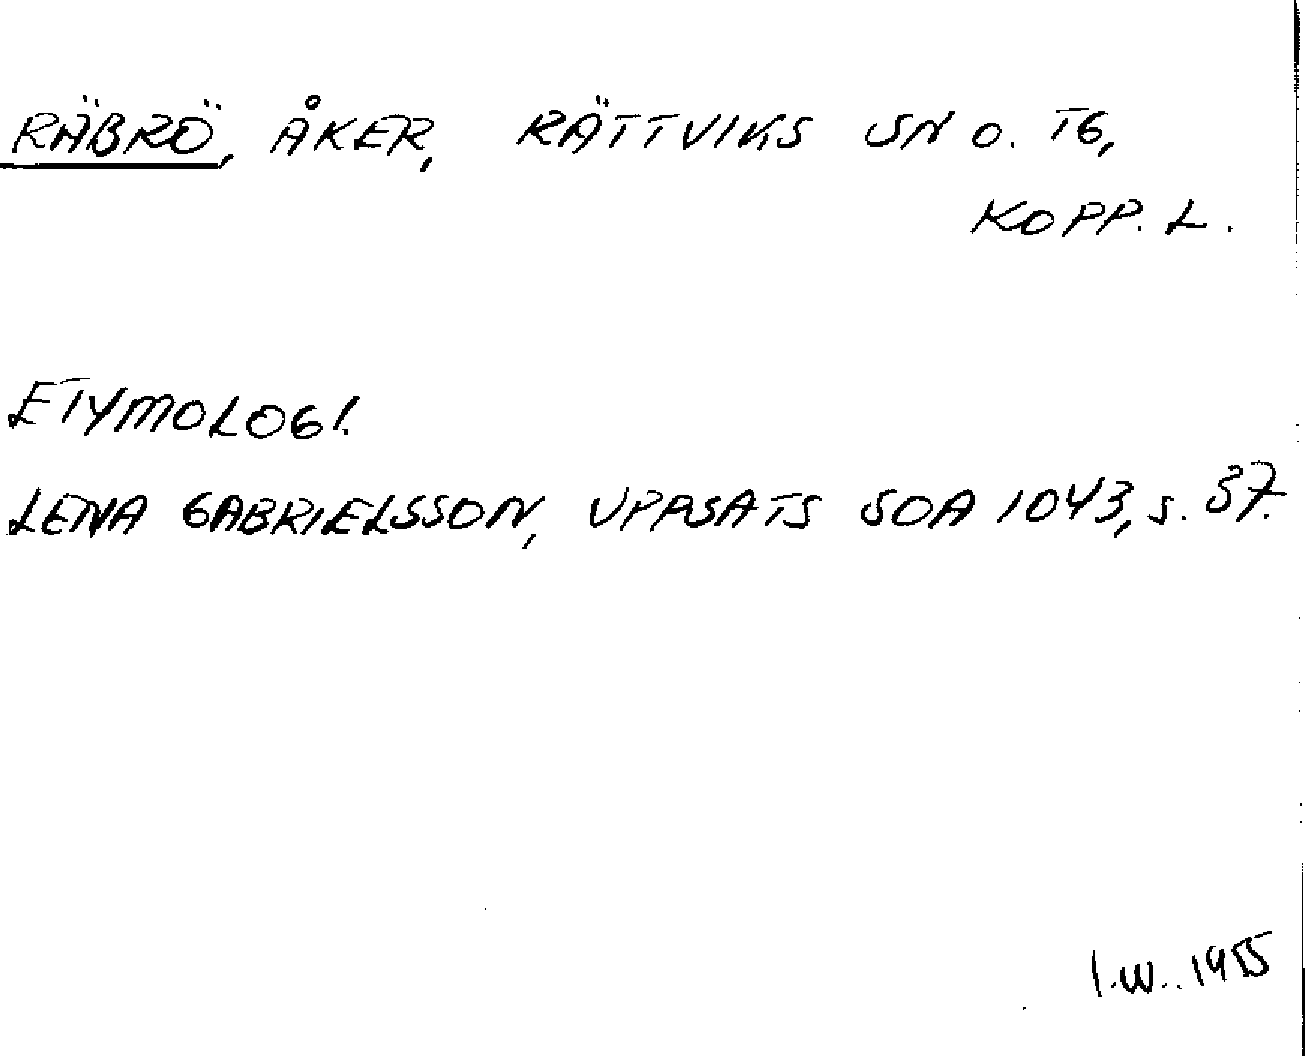 RÄBRÖ, ÅKER, RÄTTVIKS SN O. TG,
KOPP. L.
ETYMOLOGI.
LENA GABRIELSSON, UPPSATS SOA 1043, S. 37.
I.W. 1955